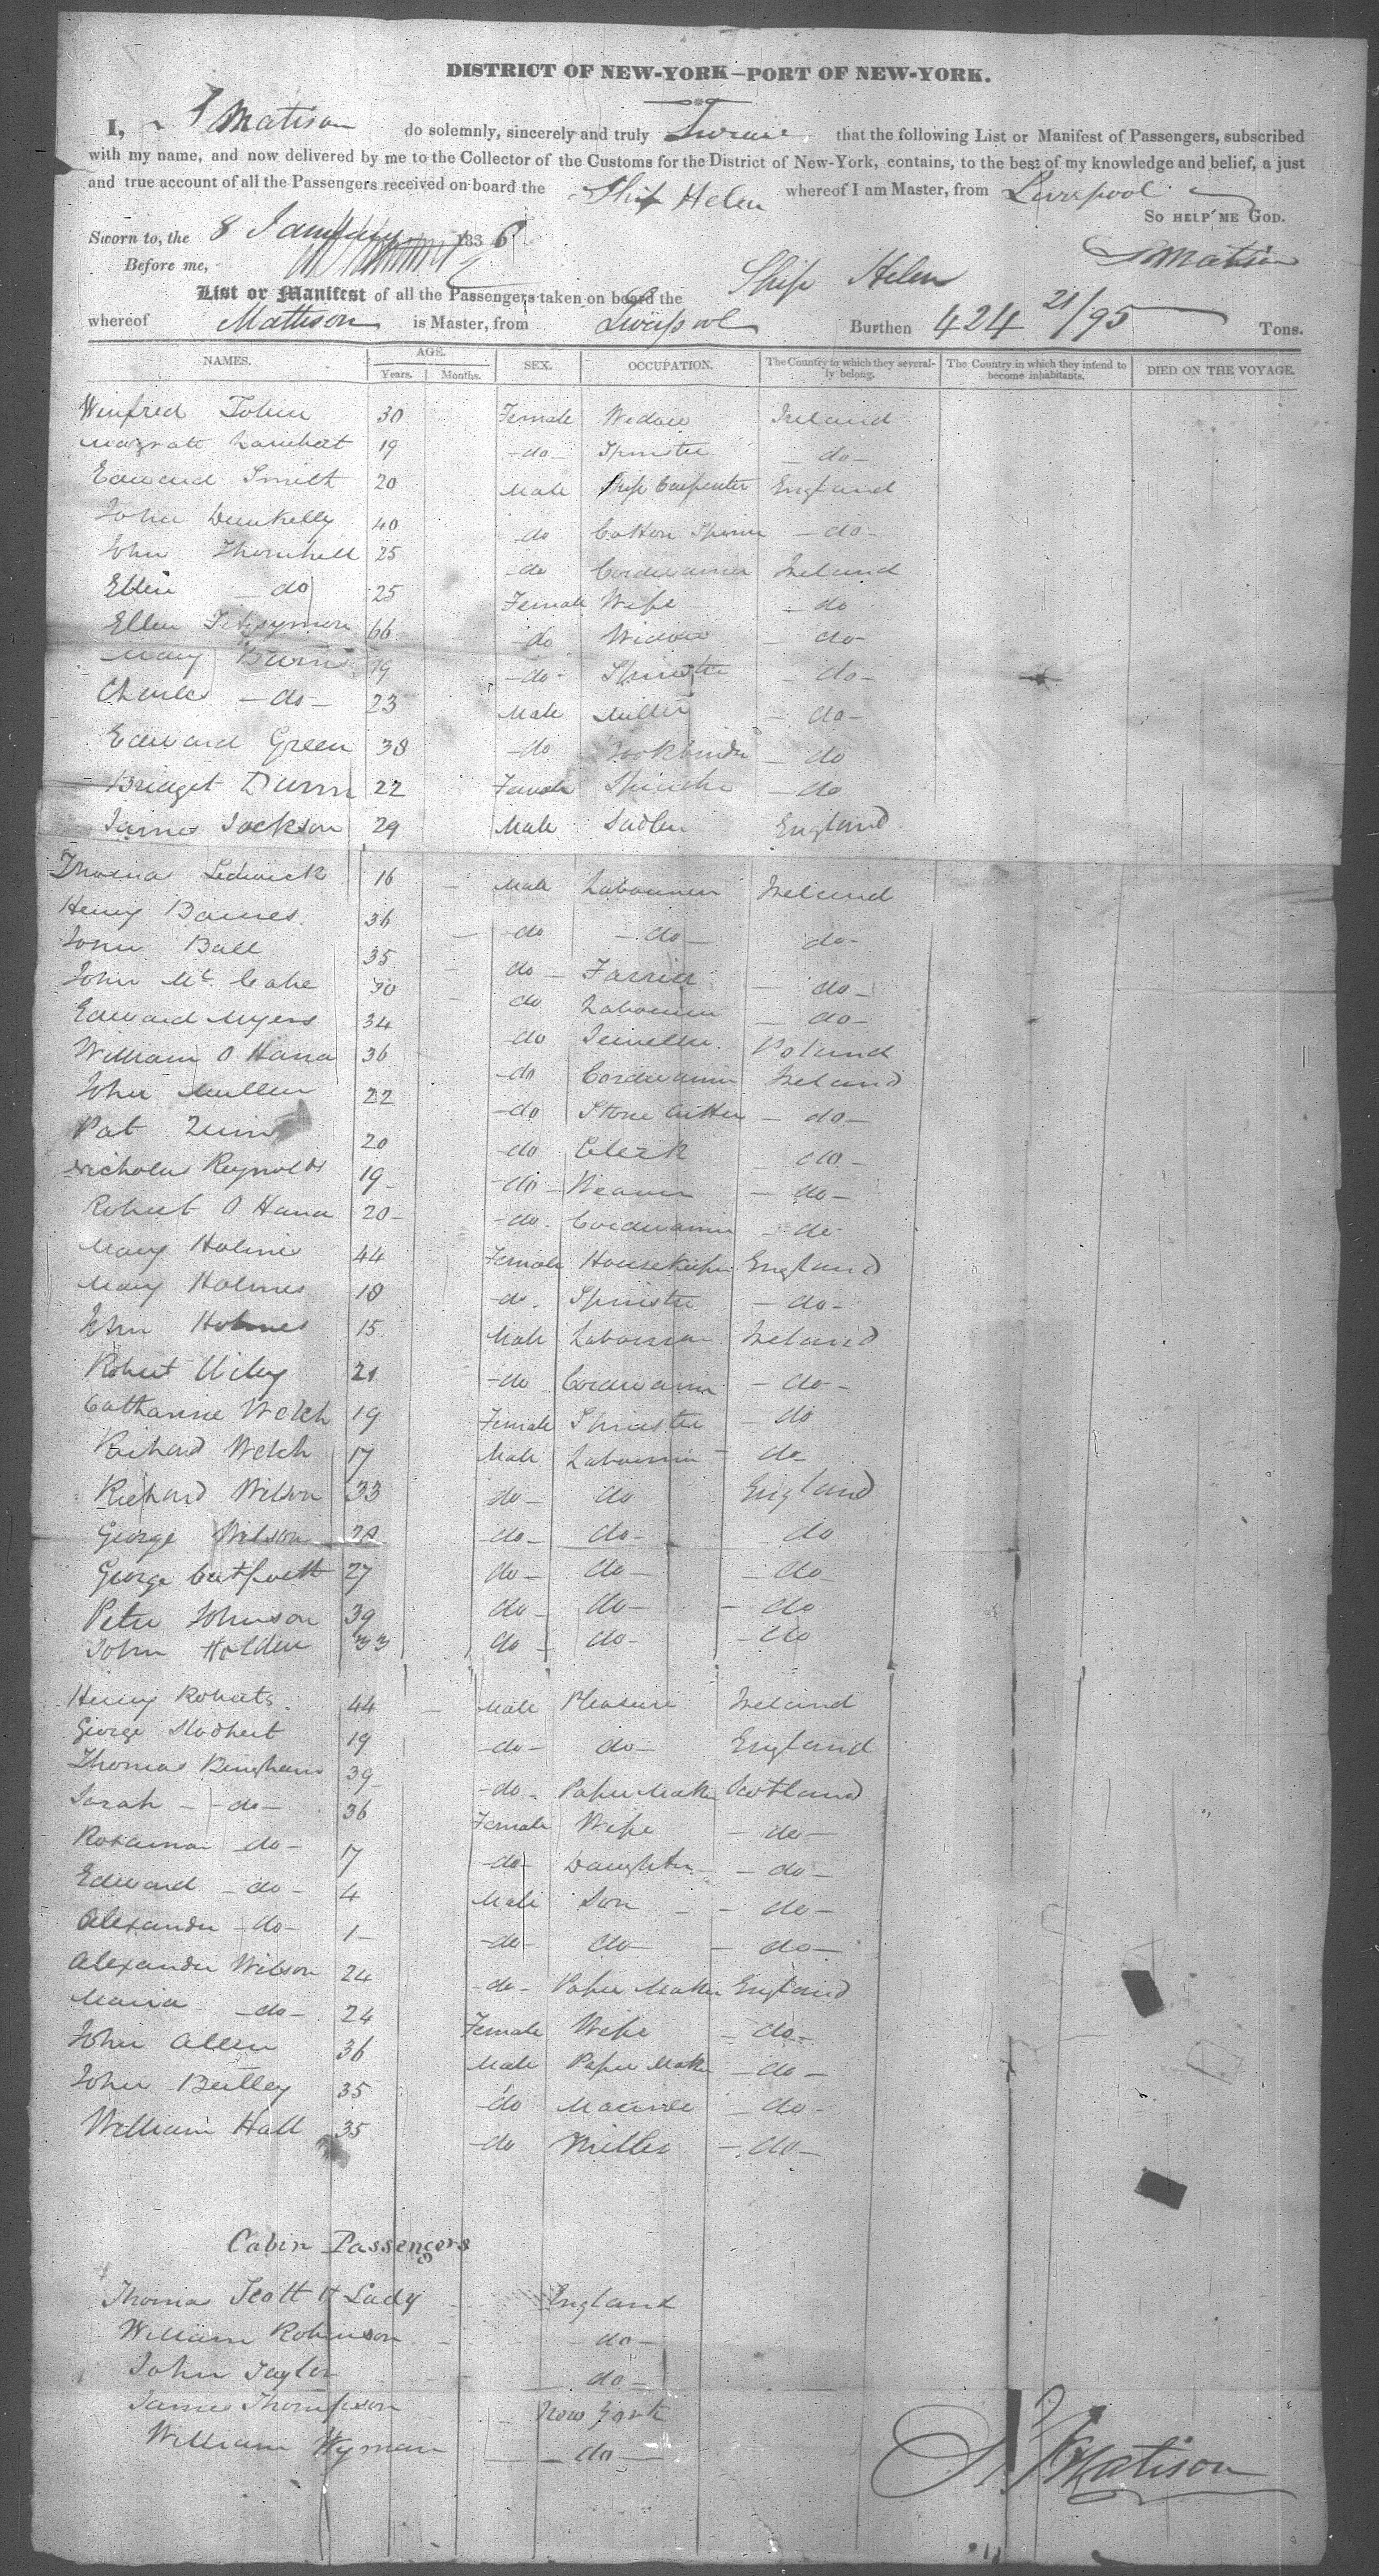 DISTRICT OF NEW-YORK—PORT OF NEW-YORK.
I, Matison do solemnly, sincerely and truly Swear that the following List or Manifest of Passengers, subscribed
with my name, and now delivered by me to the Collector of the Customs for the District of New-York, contains, to the best of my knowledge and belief, a just
and true account of all the Passengers received on board the Ship Helen whereof I am Master, from Liverpool
SO HELP ME GOD.
Sworn to, the 8 January 1836
Matison
Before me,
List or Manifest of all the Passengers taken on board the Ship Helen
whereof Mattison is Master, from Liverpool Burthen 424 21/95 Tons.
NAMES. AGE. Years. Months. SEX. OCCUPATION. The Country to which they severally belong. The Country in which they intend to become inhabitants. DIED ON THE VOYAGE.
Winfred 30 Female Widow Ireland
Lambert 19 do Spinster do
Edward Smith 20 Male Ship Carpenter England
John Dunkelly 40 do Cotton do
John Thornhill 25 do Cordwainer Ireland
Ellen do 25 Female Wife do
Ellen Fitzsymon 66 do Widow do
Mary Burns 19 do Spinster do
Charles do 23 Male Miller do
Edward Green 38 do Bookbinder do
Bridget Dunn 22 Female Spinster do
James Jackson 29 Male Sadler England
Thomas Ledwick 16 Male Labourer Ireland
Henry Barnes 36 do do do
John Ball 35 do Farrier do
John Mc Cabe 30 do Labourer do
Edward Myers 34 do Jeweller Poland
William O Hana 36 do Cordwainer Ireland
John Mullen 22 do Stone Cutter do
Pat Quin 20 do Clerk do
Nicholas Reynolds 19 do Weaver do
Robert O Hana 20 do Cordwainer do
Mary Holmes 44 Female Housekeeper England
Mary Holmes 18 do Spinster do
John Holmes 15 Male Labourer Ireland
Robert Wiley 21 do Cordwainer do
Catharine Welch 19 Female Spinster do
Richard Welch 17 Male Labourer do
Richard Wilson 33 do do England
George Wilson do do do
George 27 do do do
Peter Johnson 39 do do do
John Holden 33 do do do
Henry Roberts 44 Male Pleasure Ireland
George 19 do do England
Thomas Bingham 39 do Paper Maker Scotland
Sarah do 36 Female Wife do
Rosanna do 17 do Daughter do
Edward do 4 Male Son do
Alexander do 1 do do do
Alexander Wilson 24 do Paper Maker England
Maria do 24 Female Wife do
John Allen 36 Male Paper Maker do
John 35 do do
William Hall 35 do Miller do
Cabin Passengers
Thomas Scott & Lady England
William Robinson do
John Taylor do
James Thompson New York
William Wyman do
Matison